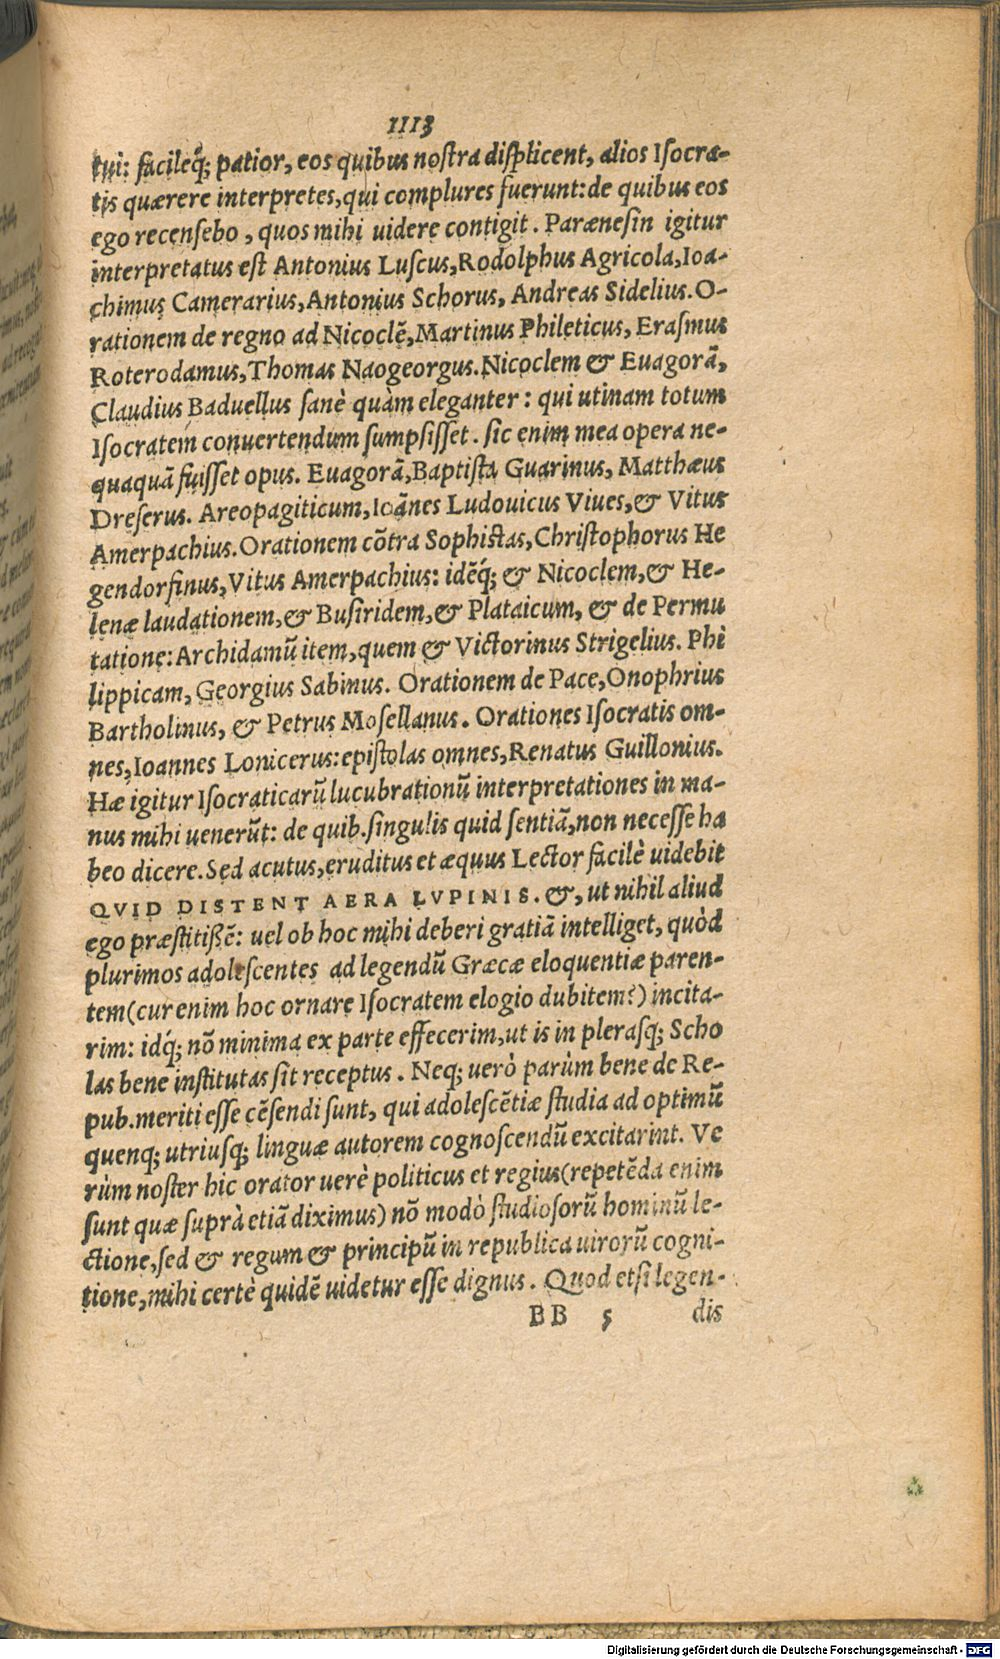 1113
tui: facileq́; patior, eos quibus nostra displicent, alios Isocra-
tis quærere interpretes, qui complures fuerunt: de quibus eos
ego recensebo, quos mihi uidere contigit. Parænesin igitur
interpretatus est Antonius Luscus, Rodolphus Agricola, Ioa-
chimus Camerarius, Antonius Schorus, Andreas Sidelius. O-
rationem de regno ad Nicoclẽ, Martinus Phileticus, Erasmus
Roterodamus, Thomas Naogeorgus. Nicoclem & Euagorã,
Claudius Baduellus sanè quàm eleganter: qui utinam totum
Isocratem conuertendum sumpsisset. sic enim mea opera ne-
quaquã fuisset opus. Euagorã, Baptista Guarinus, Matthæus
Dreserus. Areopagiticum, Ioãnes Ludouicus Viues, & Vitus
Amerpachius. Orationem cõtra Sophistas, Christophorus He
gendorfinus, Vitus Amerpachius: idẽq́; & Nicoclem, & He-
lenæ laudationem, & Busiridem, & Plataicum, & de Permu
tatione: Archidamũ item, quem & Victorinus Strigelius. Phi
lippicam, Georgius Sabinus. Orationem de Pace, Onophrius
Bartholinus, & Petrus Mosellanus. Orationes Isocratis om-
nes, Ioannes Lonicerus: epistolas omnes, Renatus Guillonius.
Hæ igitur Isocraticarũ lucubrationũ interpretationes in ma-
nus mihi uenerũt: de quib. singulis quid sentiã, non necesse ha
beo dicere. Sed acutus, eruditus et æquus Lector facilè uidebit
QVID DISTENT AERA LVPINIS. &, ut nihil aliud
ego præstitißẽ: uel ob hoc mihi deberi gratiã intelliget, quòd
plurimos adolescentes ad legendũ Græcæ eloquentiæ paren-
tem (cur enim hoc ornare Isocratem elogio dubitem?) incita-
rim: idq́; nõ minima ex parte effecerim, ut is in plerasq; Scho
las bene institutas sit receptus. Neq; uerò parùm bene de Re-
pub. meriti esse cẽsendi sunt, qui adolescẽtiæ studia ad optimũ
quenq; utriusq; linguæ autorem cognoscendũ excitarint. Ve
rùm noster hic orator uerè politicus et regius (repetẽda enim
sunt quæ suprà etiã diximus) nõ modò studiosorũ hominũ le-
ctione, sed & regum & principũ in republica uirorũ cogni-
tione, mihi certè quidẽ uidetur esse dignus. Quod etsi legen-
BB 5 dis
Digitalisierung gefördert durch die Deutsche Forschungsgemeinschaft - DFG